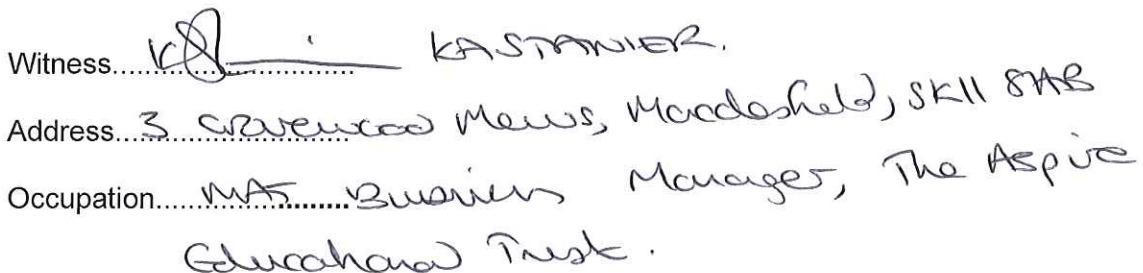 Witness.......................... KASTANIER.
Address...3 Gravewood Mews, Macclesfield, SK11 8AB
Occupation......MAT......Business Manager, The Aspire
Educational Trust.